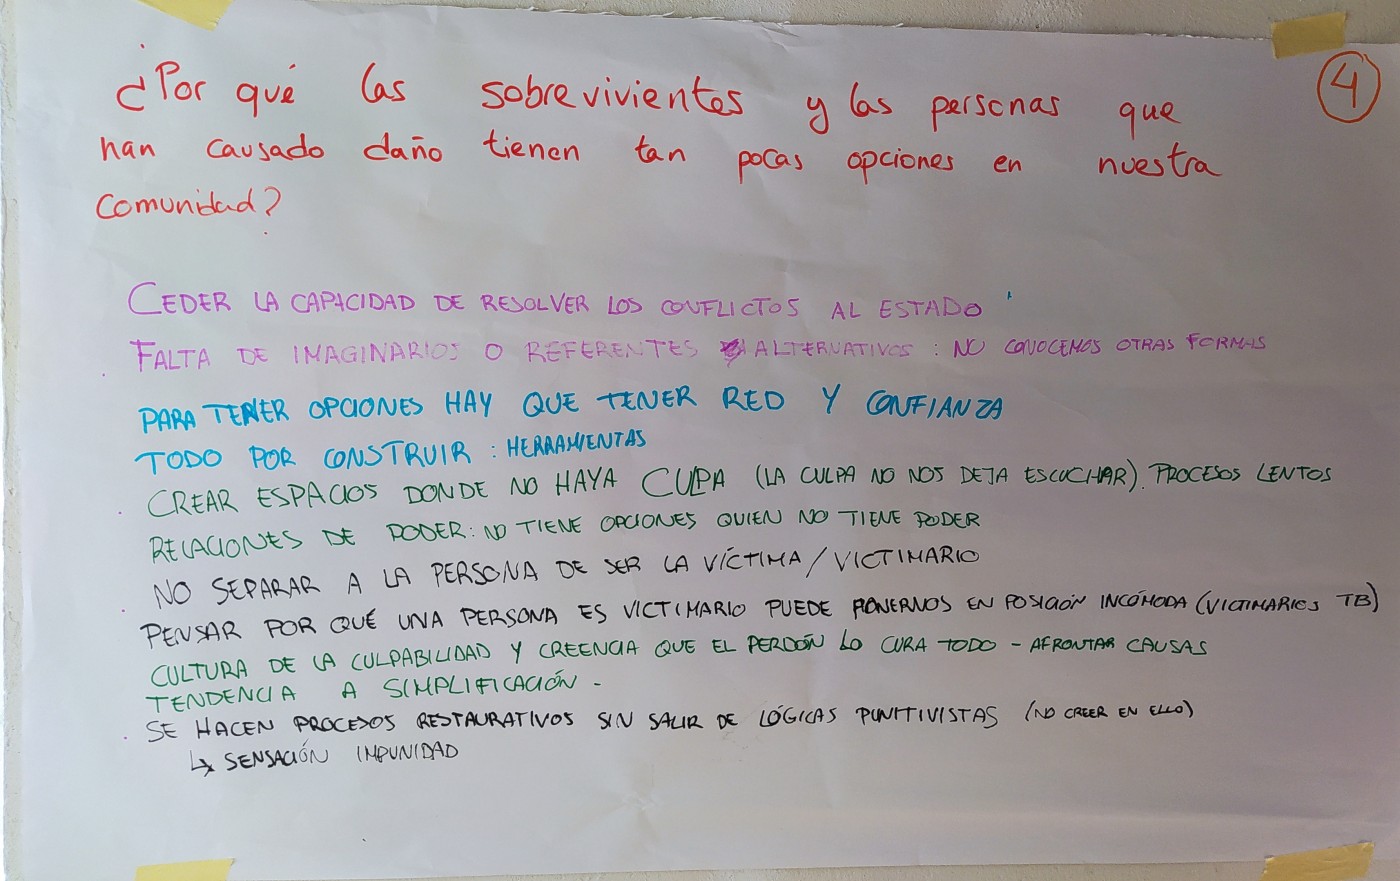 4
¿Por qué las sobrevivientes y las personas que
han causado daño tienen tan pocas opciones en nuestra
comunidad?
CEDER LA CAPACIDAD DE RESOLVER LOS CONFLICTOS AL ESTADO
FALTA DE IMAGINARIOS O REFERENTES ALTERNATIVOS: NO CONOCEMOS OTRAS FORMAS
PARA TENER OPCIONES HAY QUE TENER RED Y CONFIANZA
TODO POR CONSTRUIR: HERRAMIENTAS
CREAR ESPACIOS DONDE NO HAYA CULPA (LA CULPA NO NOS DEJA ESCUCHAR). PROCESOS LENTOS
RELACIONES DE PODER: NO TIENE OPCIONES QUIEN NO TIENE PODER
NO SEPARAR A LA PERSONA DE SER LA VÍCTIMA/VICTIMARIO
PENSAR POR QUÉ UNA PERSONA ES VICTIMARIO PUEDE PONERNOS EN POSICIÓN INCÓMODA (VICTIMARIOS TB)
CULTURA DE LA CULPABILIDAD Y CREENCIA QUE EL PERDÓN LO CURA TODO - AFRONTAR CAUSAS
TENDENCIA A SIMPLIFICACIÓN -
SE HACEN PROCESOS RESTAURATIVOS SIN SALIR DE LÓGICAS PUNITIVISTAS (NO CREER EN ELLO)
↳ SENSACIÓN IMPUNIDAD